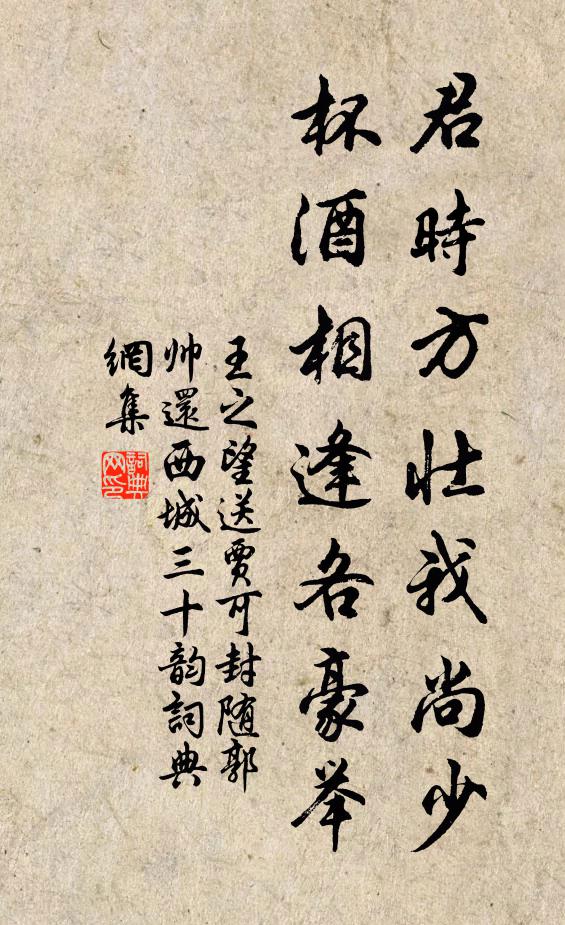 君時方壮我尚少
杯酒相逢各豪举
王之望送賈可封随郭
帅還西城三十韵詞典
網集
詞典
网印